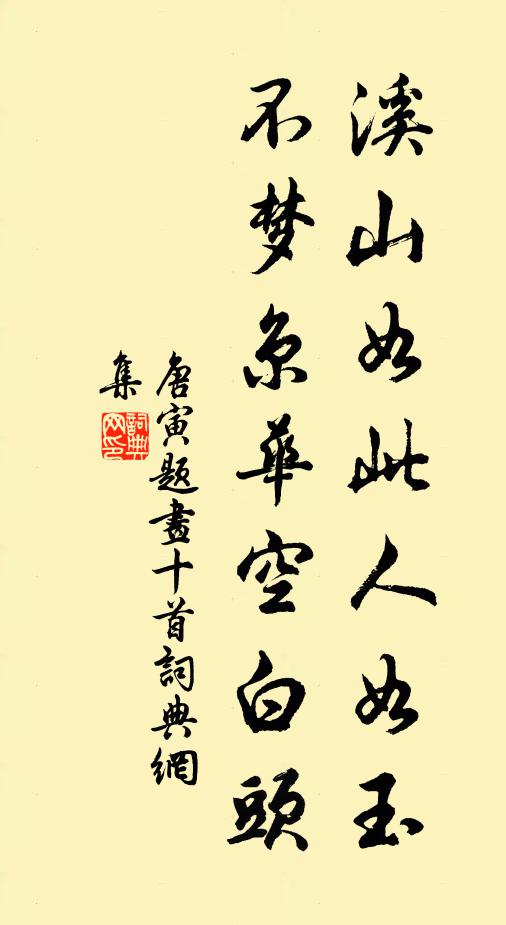 溪山如此人如玉
不梦京华空白頭
唐寅題畫十首詞典網
集
詞典
网印